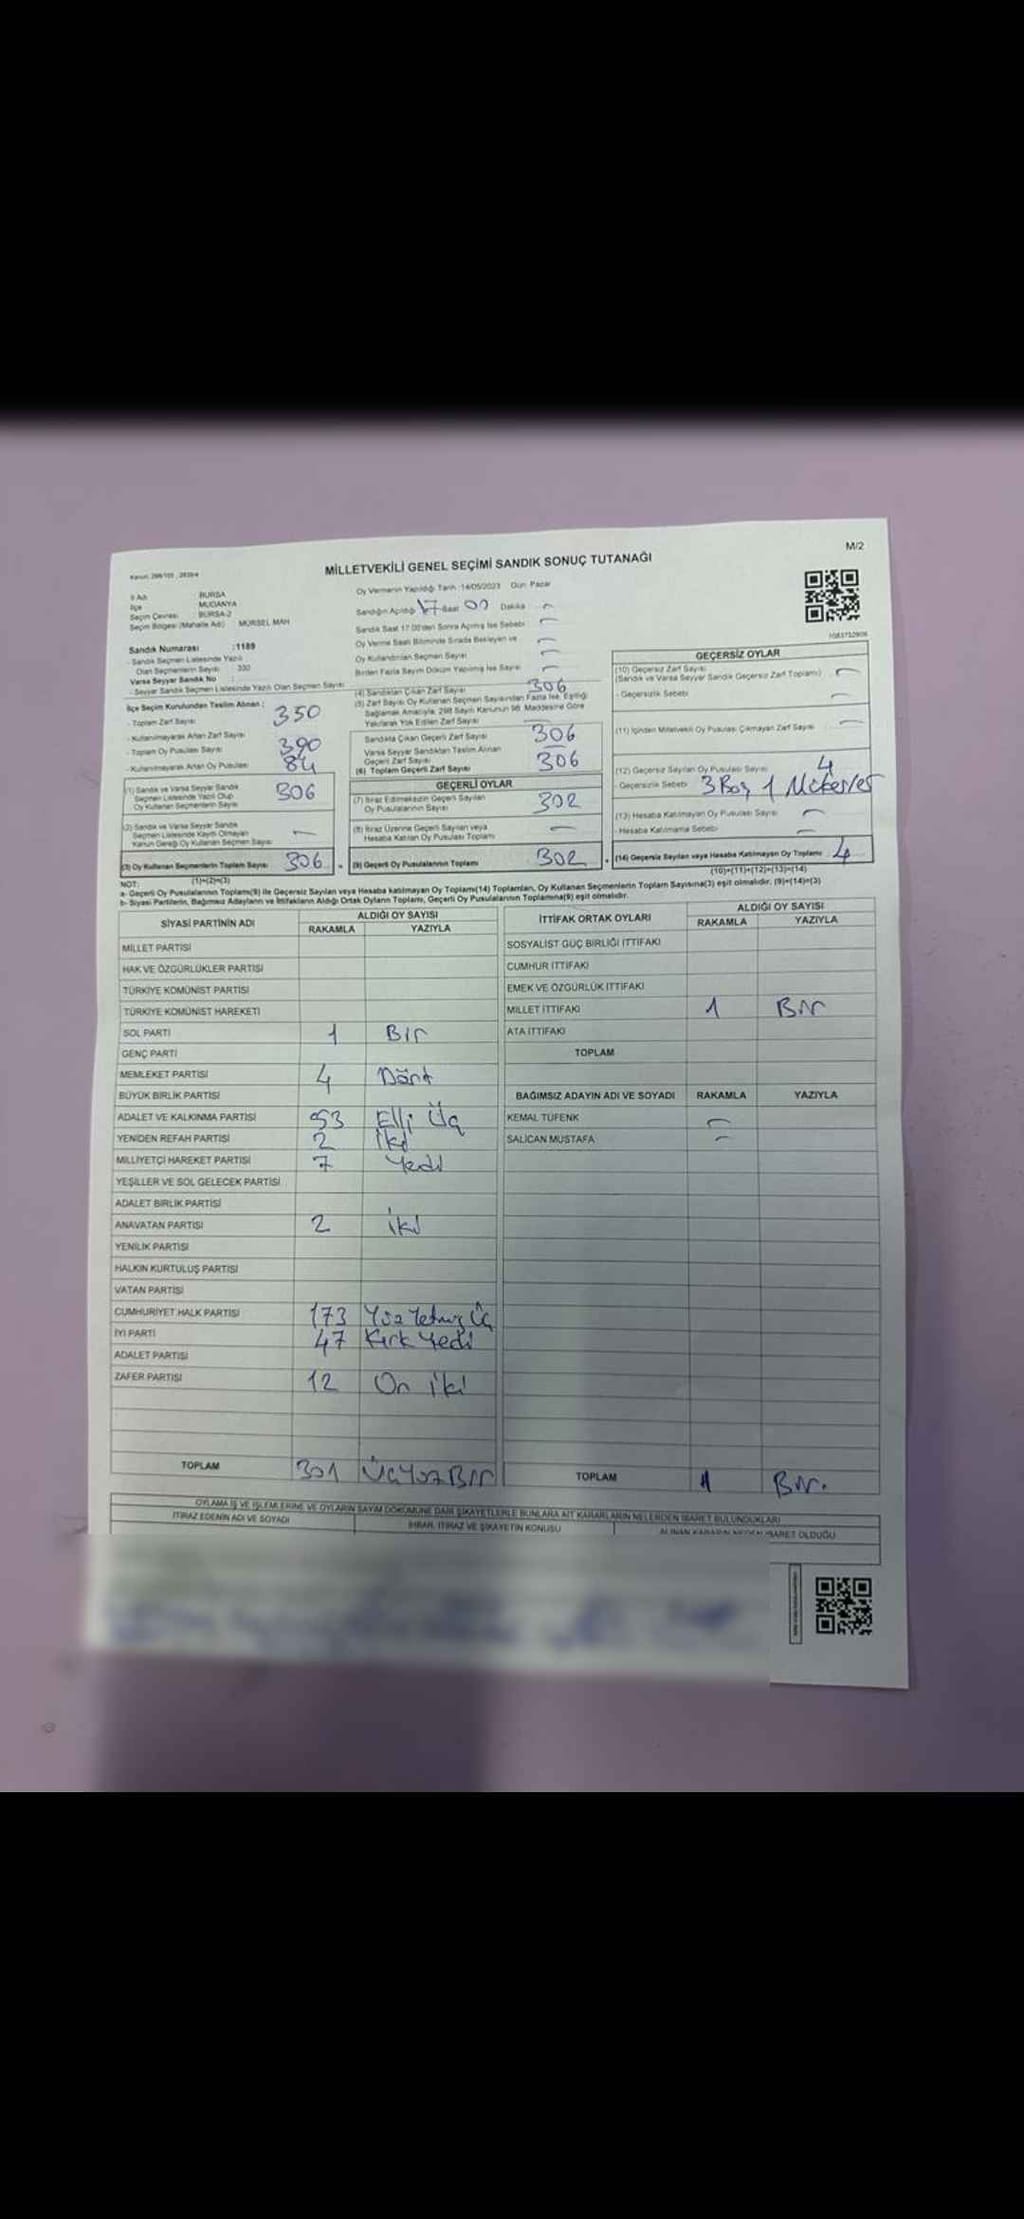 M/2
MİLLETVEKİLİ GENEL SEÇİMİ SANDIK SONUÇ TUTANAĞI
İl Adı : BURSA
İlçe : MUDANYA
Seçim Çevresi : BURSA-2
Seçim Bölgesi (Mahalle Adı) : MÜRSEL MAH
Sandık Numarası :1189
- Sandık Seçmen Listesinde Yazılı
Olan Seçmenlerin Sayısı : 330
Varsa Seyyar Sandık No :
- Seyyar Sandık Seçmen Listesinde Yazılı Olan Seçmen Sayısı
İlçe Seçim Kurulundan Teslim Alınan :
- Toplam Zarf Sayısı 350
- Kullanılmayarak Artan Zarf Sayısı
- Toplam Oy Pusulası Sayısı 390
- Kullanılmayarak Artan Oy Pusulası 84
(1) Sandık ve Varsa Seyyar Sandık
Seçmen Listesinde Yazılı Olup
Oy Kullanan Seçmenlerin Sayısı 306
(2) Sandık ve Varsa Seyyar Sandık
Seçmen Listesinde Kayıtlı Olmayan
Kanun Gereği Oy Kullanan Seçmen Sayısı –
(3) Oy Kullanan Seçmenlerin Toplam Sayısı 306
(1)+(2)=(3)
Oy Vermenin Yapıldığı Tarih :14/05/2023 Gün: Pazar
Sandığın Açıldığı 17 Saat 00 Dakika –
Sandık Saat 17:00'den Sonra Açılmış İse Sebebi –
Oy Verme Saati Bitiminde Sırada Bekleyen ve
Oy Kullandırılan Seçmen Sayısı –
Birden Fazla Sayım Döküm Yapılmış İse Sayısı –
(4) Sandıktan Çıkan Zarf Sayısı 306
(5) Zarf Sayısı Oy Kullanan Seçmen Sayısından Fazla İse, Eşitliği
Sağlamak Amacıyla, 298 Sayılı Kanunun 98. Maddesine Göre
Yakılarak Yok Edilen Zarf Sayısı –
Sandıkta Çıkan Geçerli Zarf Sayısı 306
Varsa Seyyar Sandıktan Teslim Alınan
Geçerli Zarf Sayısı –
(6) Toplam Geçerli Zarf Sayısı 306
GEÇERLİ OYLAR
(7) İtiraz Edilmeksizin Geçerli Sayılan
Oy Pusulalarının Sayısı 302
(8) İtiraz Üzerine Geçerli Sayılan veya
Hesaba Katılan Oy Pusulası Toplamı –
(9) Geçerli Oy Pusulalarının Toplamı 302
GEÇERSİZ OYLAR
(10) Geçersiz Zarf Sayısı
(Sandık ve Varsa Seyyar Sandık Geçersiz Zarf Toplamı) –
- Geçersizlik Sebebi –
(11) İçinden Milletvekili Oy Pusulası Çıkmayan Zarf Sayısı –
(12) Geçersiz Sayılan Oy Pusulası Sayısı 4
- Geçersizlik Sebebi 3 Boş 1
(13) Hesaba Katılmayan Oy Pusulası Sayısı –
- Hesaba Katılmama Sebebi –
(14) Geçersiz Sayılan veya Hesaba Katılmayan Oy Toplamı 4
(10)+(11)+(12)+(13)=(14)
NOT:
a- Geçerli Oy Pusulalarının Toplamı(9) ile Geçersiz Sayılan veya Hesaba katılmayan Oy Toplamı(14) Toplamları, Oy Kullanan Seçmenlerin Toplam Sayısına(3) eşit olmalıdır. (9)+(14)=(3)
b- Siyasi Partilerin, Bağımsız Adayların ve İttifakların Aldığı Ortak Oyların Toplamı, Geçerli Oy Pusulalarının Toplamına(9) eşit olmalıdır.
SİYASİ PARTİNİN ADI ALDIĞI OY SAYISI
RAKAMLA YAZIYLA
MİLLET PARTİSİ
HAK VE ÖZGÜRLÜKLER PARTİSİ
TÜRKİYE KOMÜNİST PARTİSİ
TÜRKİYE KOMÜNİST HAREKETİ
SOL PARTİ 1 Bir
GENÇ PARTİ
MEMLEKET PARTİSİ 4 Dört
BÜYÜK BİRLİK PARTİSİ
ADALET VE KALKINMA PARTİSİ 53 Elli Üç
YENİDEN REFAH PARTİSİ 2 İki
MİLLİYETÇİ HAREKET PARTİSİ 7 Yedi
YEŞİLLER VE SOL GELECEK PARTİSİ
ADALET BİRLİK PARTİSİ
ANAVATAN PARTİSİ 2 İki
YENİLİK PARTİSİ
HALKIN KURTULUŞ PARTİSİ
VATAN PARTİSİ
CUMHURİYET HALK PARTİSİ 173 Yüz Yetmiş Üç
İYİ PARTİ 47 Kırk Yedi
ADALET PARTİSİ
ZAFER PARTİSİ 12 On İki
TOPLAM 301 ÜçYüzBir
İTTİFAK ORTAK OYLARI ALDIĞI OY SAYISI
RAKAMLA YAZIYLA
SOSYALİST GÜÇ BİRLİĞİ İTTİFAKI
CUMHUR İTTİFAKI
EMEK VE ÖZGÜRLÜK İTTİFAKI
MİLLET İTTİFAKI 1 Bir
ATA İTTİFAKI
TOPLAM
BAĞIMSIZ ADAYIN ADI VE SOYADI RAKAMLA YAZIYLA
KEMAL TÜFENK –
SALİCAN MUSTAFA –
TOPLAM 1 Bir.
OYLAMA İŞ VE İŞLEMLERİNE VE OYLARIN SAYIM DÖKÜMÜNE DAİR ŞİKAYETLERLE BUNLARA AİT KARARLARIN NELERDEN İBARET BULUNDUKLARI
İTİRAZ EDENİN ADI VE SOYADI
İHBAR, İTİRAZ VE ŞİKAYETİN KONUSU
ALINAN KARARIN NEDEN İBARET OLDUĞU